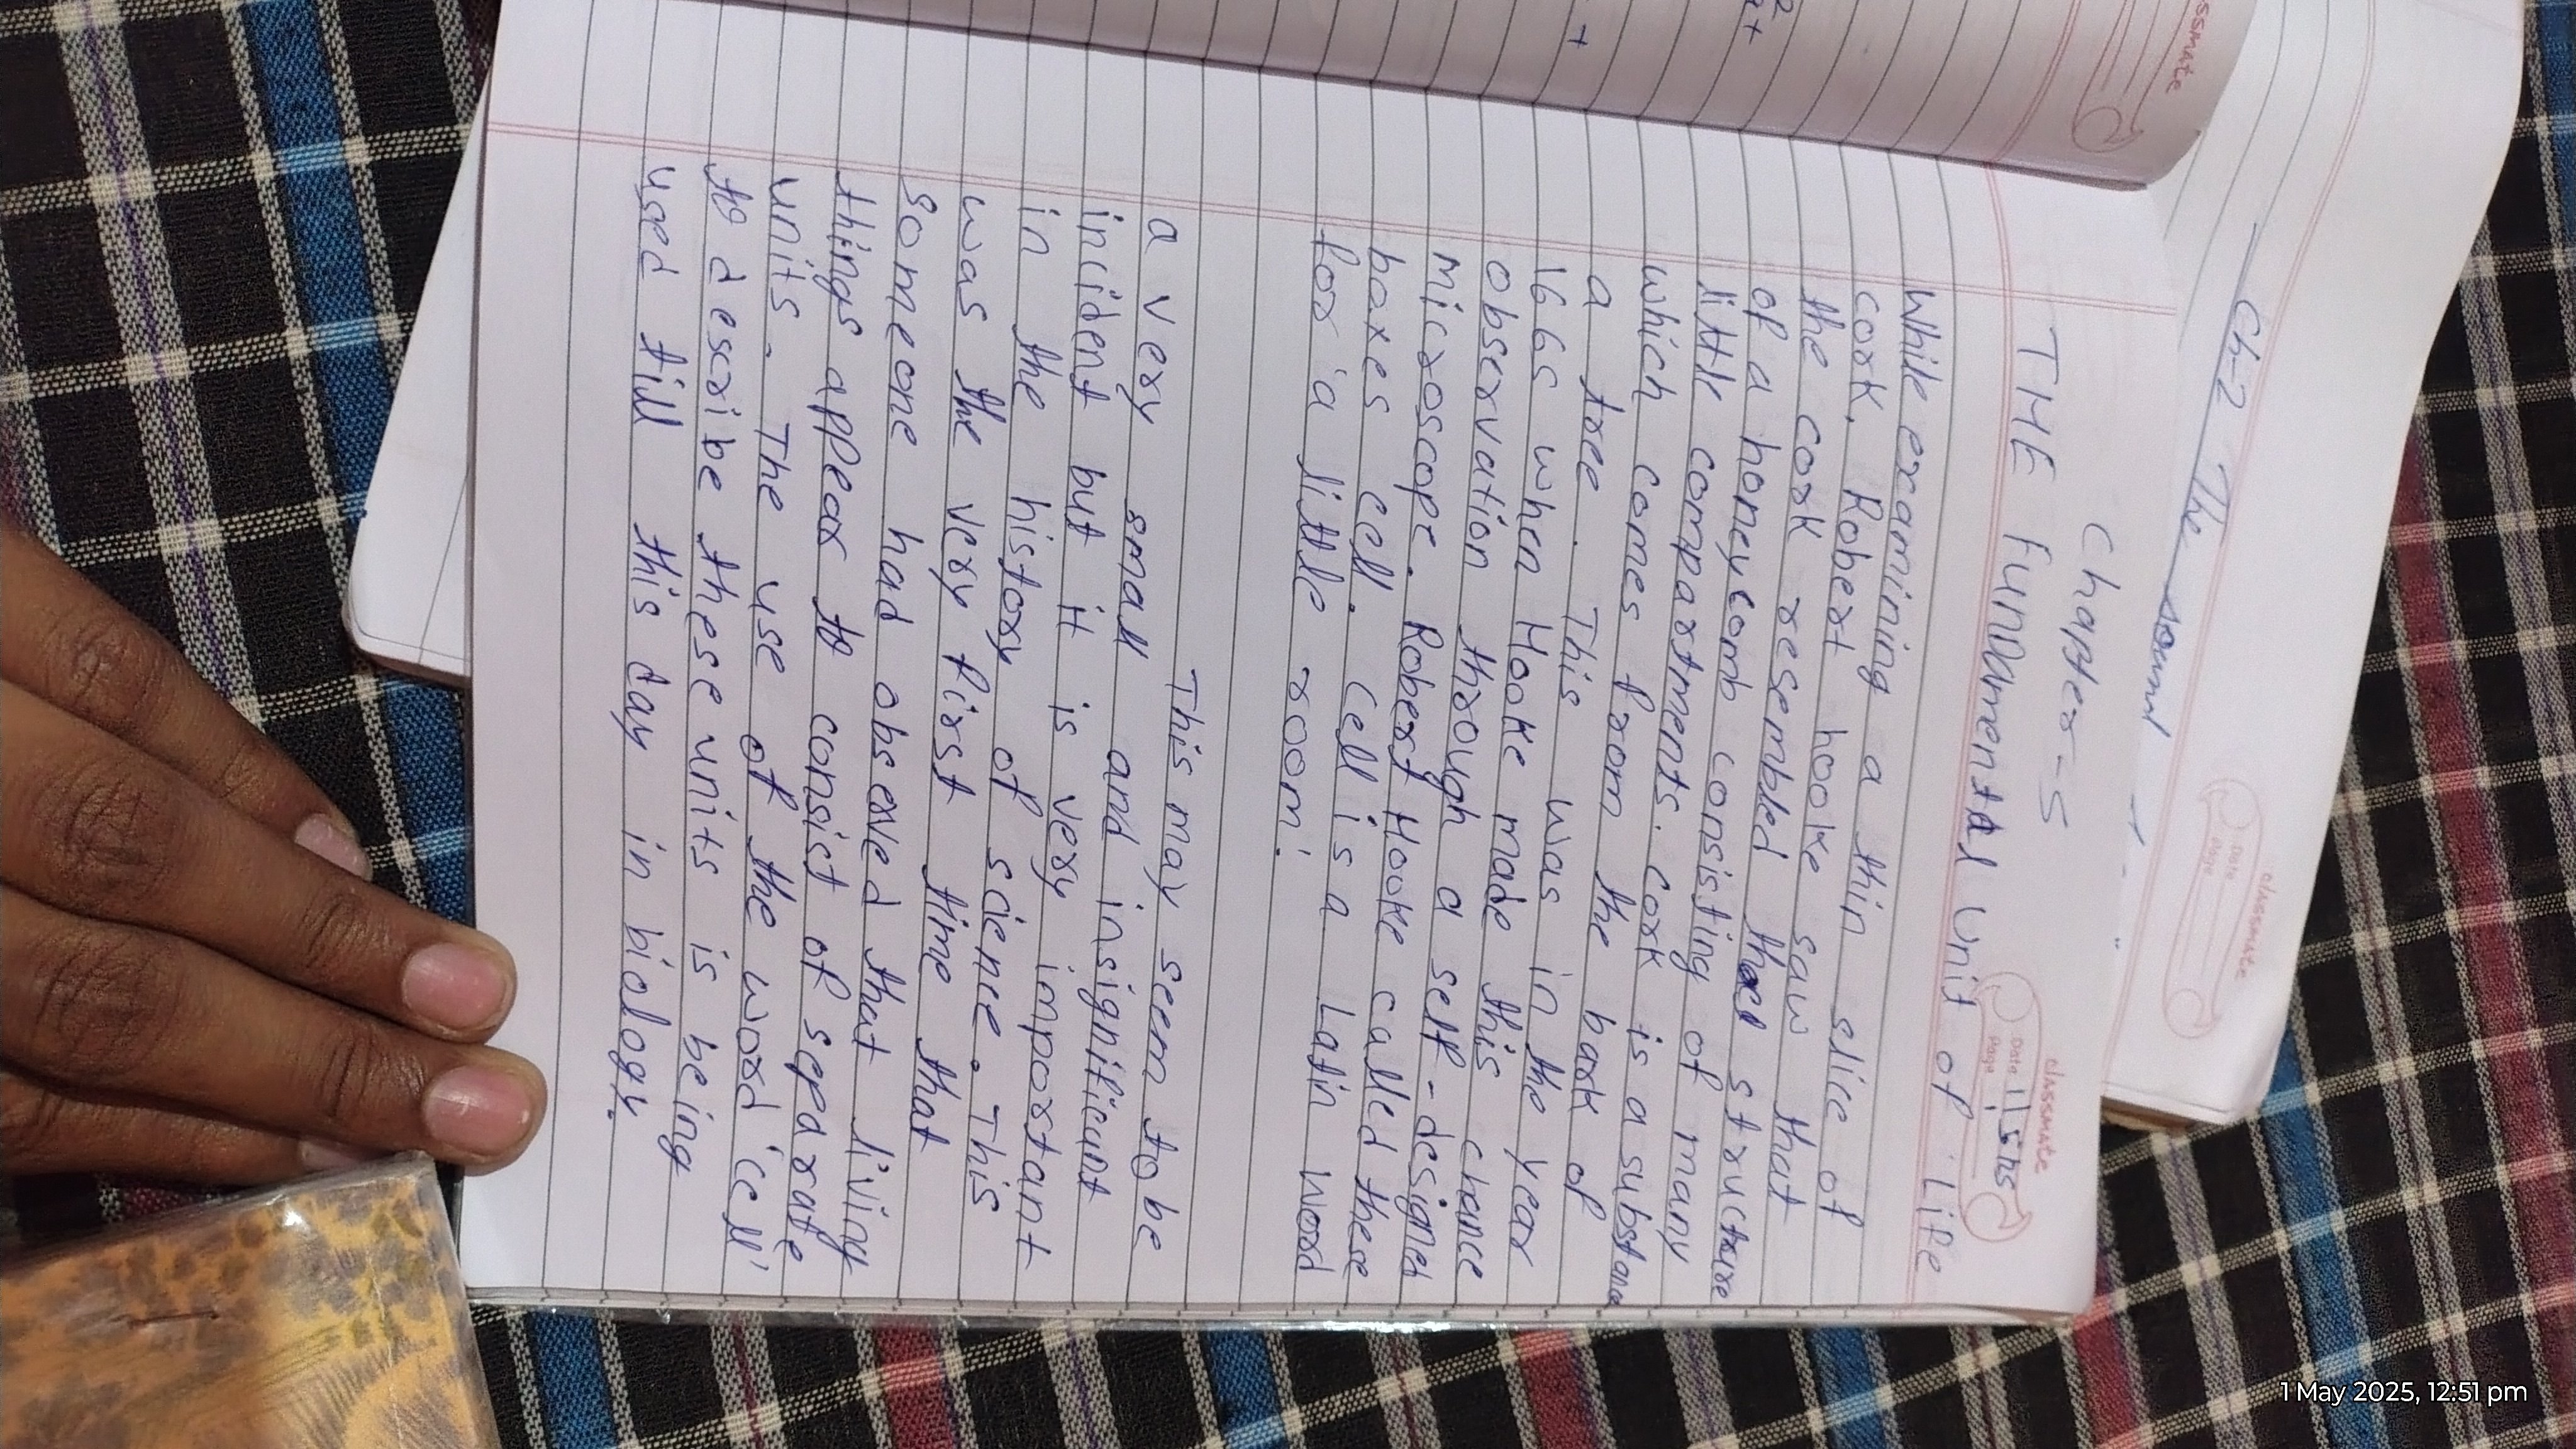 Ch-2 The
classmate
Date
Page
classmate
Date 1/5/25
Page
Chapter-5
THE FUNDAMENTAL UNIT OF LIFE
While examining a thin slice of
cork, Robert hooke saw that
the cork resembled the structure
of a honeycomb consisting of many
little compartments. Cork is a substance
which comes from the bark of
a tree. This was in the year
1665 when Hooke made this chance
observation through a self-designed
microscope. Robert Hooke called these
boxes cell. Cell is a Latin word
for 'a little room'.
This may seem to be
a very small and insignificant
incident but it is very important
in the history of science. This
was the very first time that
Someone had observed that living
things appear to consist of separate
units. The use of the word 'cell'
to describe these units is being
used till this day in biology.
ssmate
1 May 2025, 12:51 pm